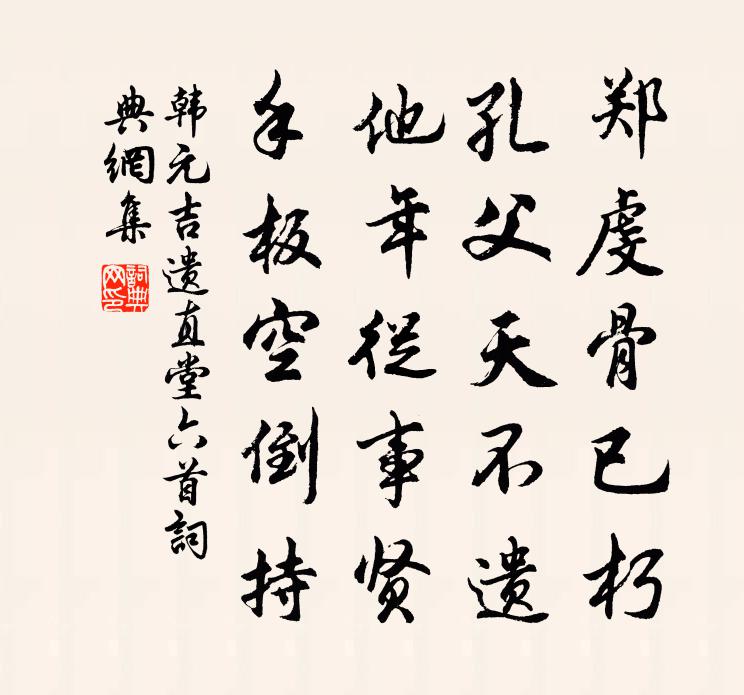 郑虔骨已朽
孔父天不遗
他年从事贤
手板空倒持
韩元吉遗直堂六首詞
典網集
詞典
网印